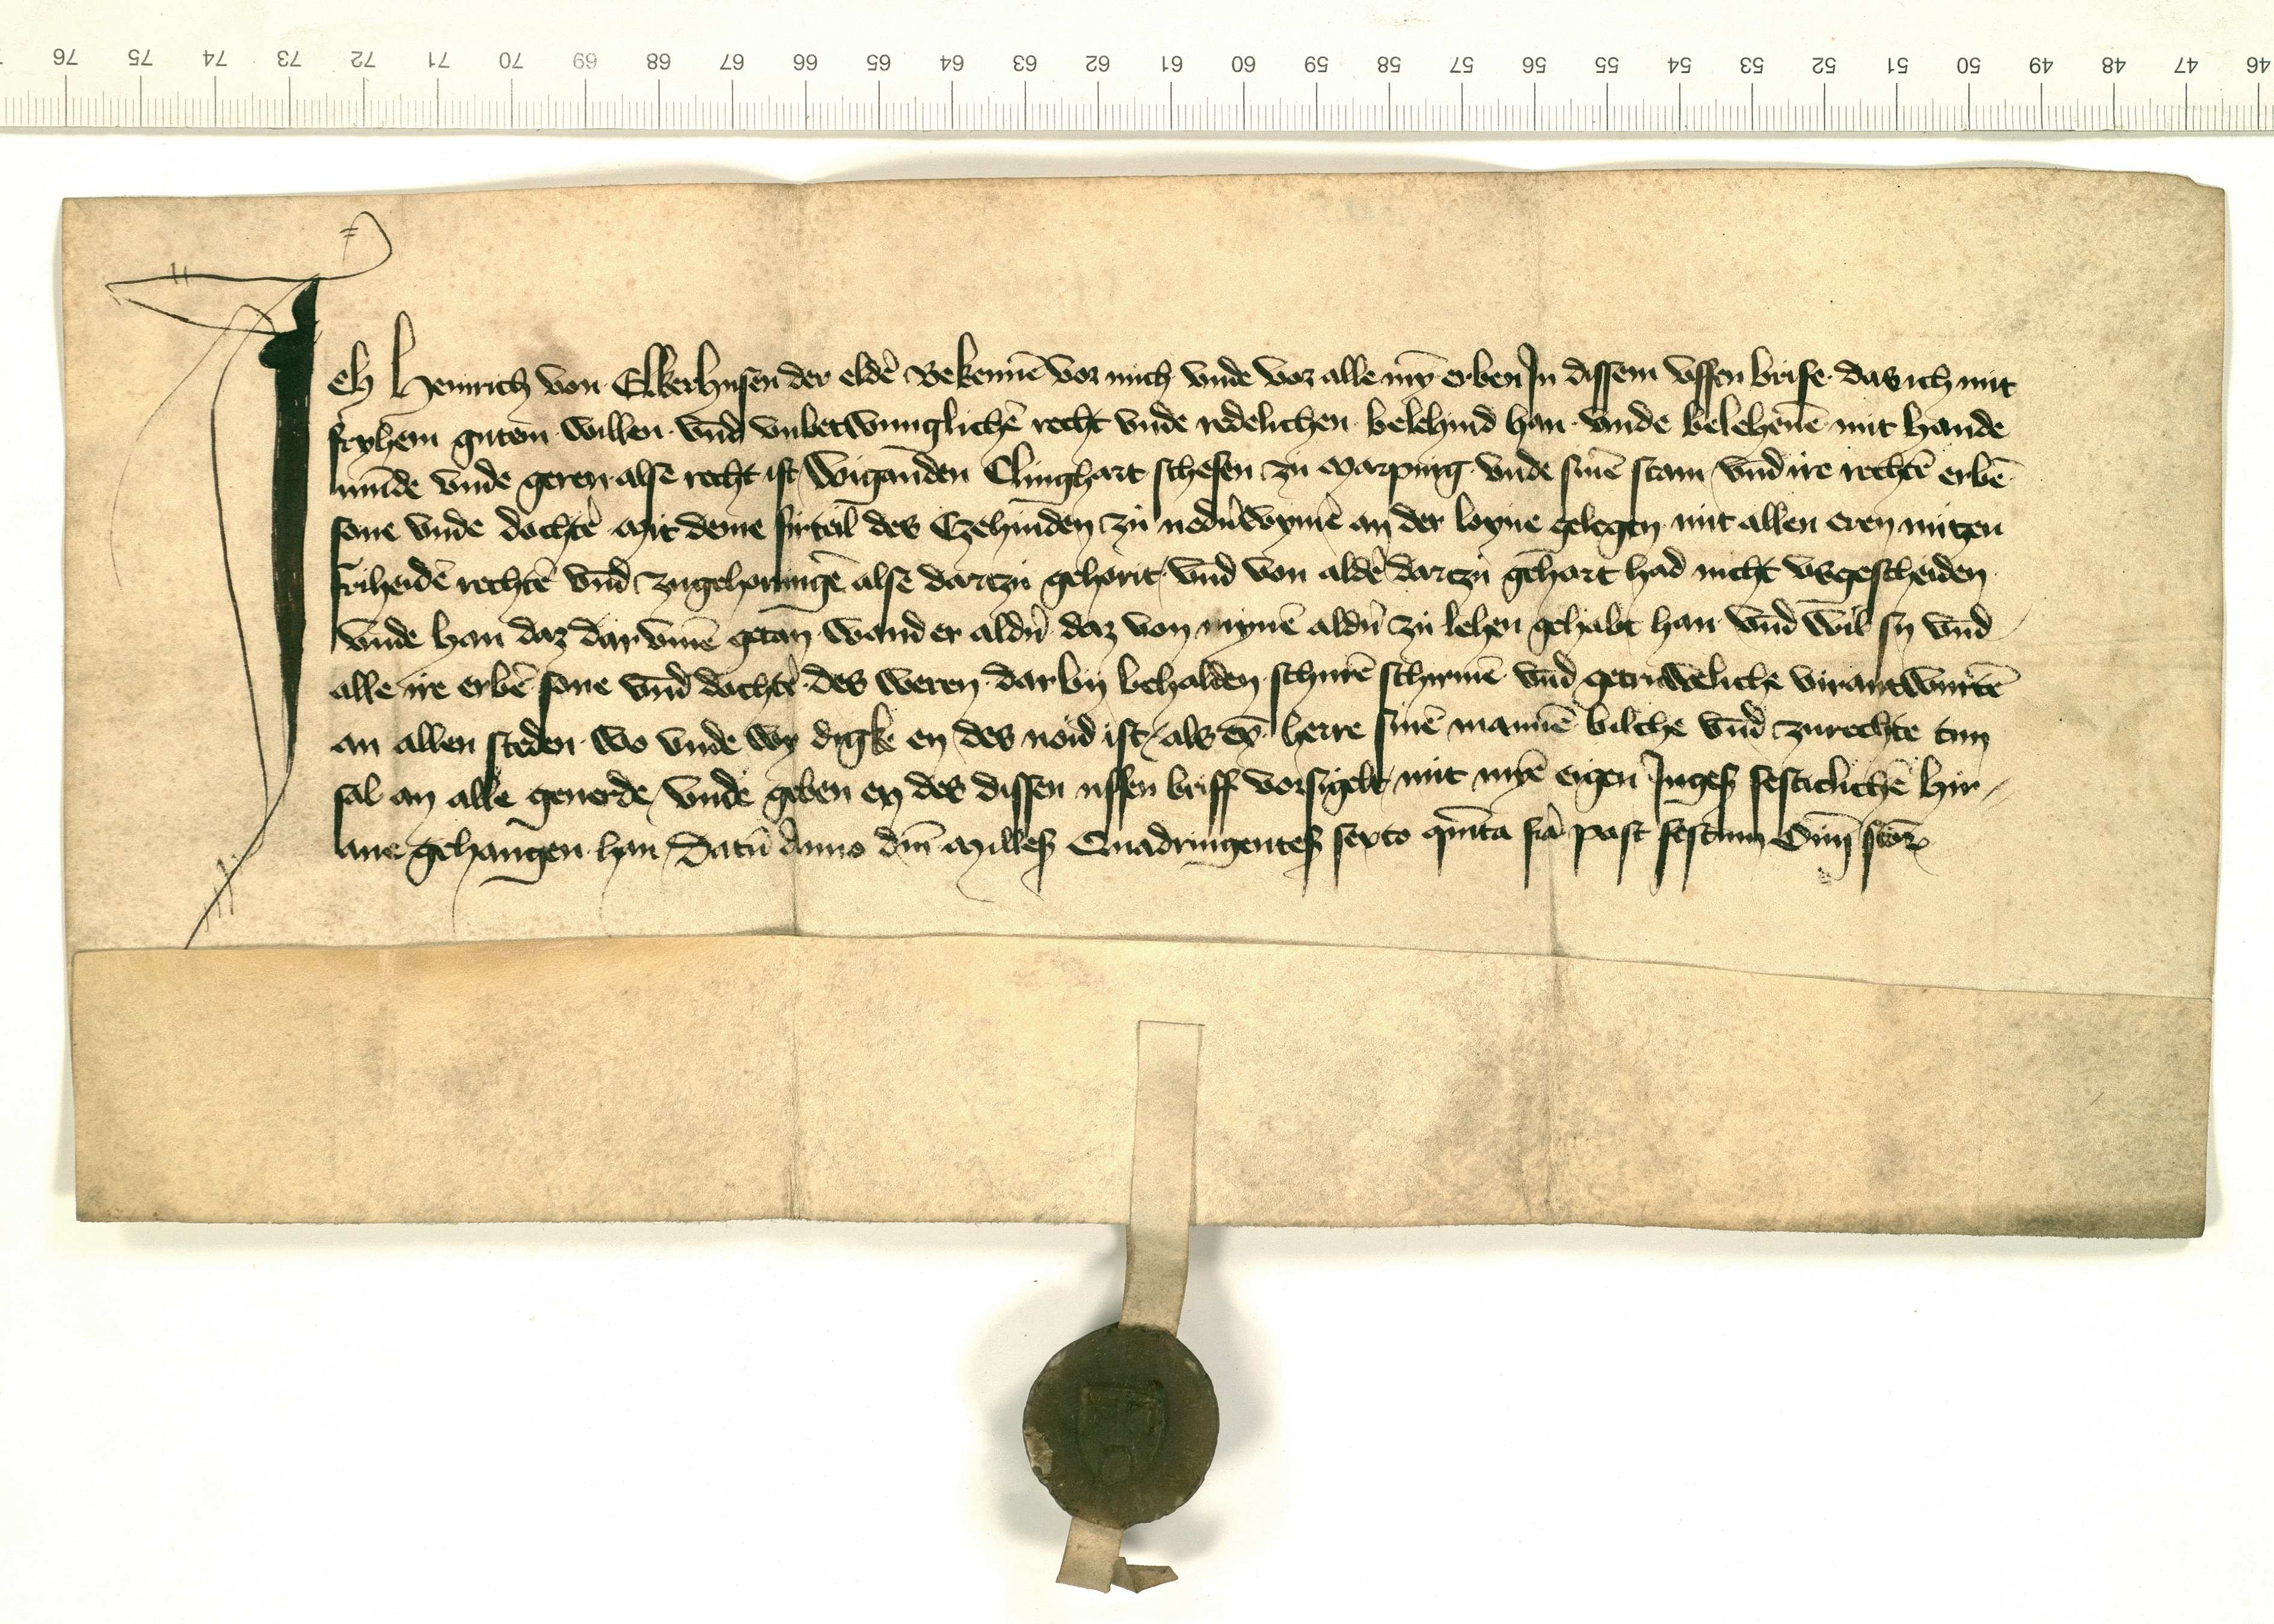 76 75 74 73 72 71 70 69 68 67 66 65 64 63 62 61 60 59 58 57 56 55 54 53 52 51 50 49 48 47 46
Ich Heinrich von Elkerhusen der eldē Bekennē vor mich vnde vor alle mȳ erben In dissem uffen brife das ich mit
fryhem gutem willen vnd vnbetwunglichē recht vnde redelichen belehind han vnde belehenē mit hande
munde vnde geren alse recht ist Wiganden Clinghart schefen zu Marpurg vnde sinē stam vnd ire rechtē erbē
sone vnde dochtē Mit deme firteil des Czehinden zu nedirwymē an der loyne gelegen mit allen eren nutzen
friheidē rechtē vnd zugehorungē alse dartzu gehorit vnd von aldē dartzu gehort had nicht vsgescheiden
vnde han daz dar vmē getan wand er aldn̄ daz von mynē aldn̄ zu lehen gehabt han vnd wil sy vnd
alle ire erbē sone vnd dochtē des weren dar by behalden schurē schirmē vnd getruweliche virantwurtē
an allen steden wo vnde wy digke en des noid ist als eȳ herre sinē mannē biliche vnd zurechte tun
sal an alle geuerde vnde geben en des dissen uffen briff vorsigelt mit mynē eigen Ingeß festiclichē hir
ane gehangen han Datū Anno dn̄i Milleß Quadringenteß sexto qn̄ta fr̄a post festum Om̄ scōr